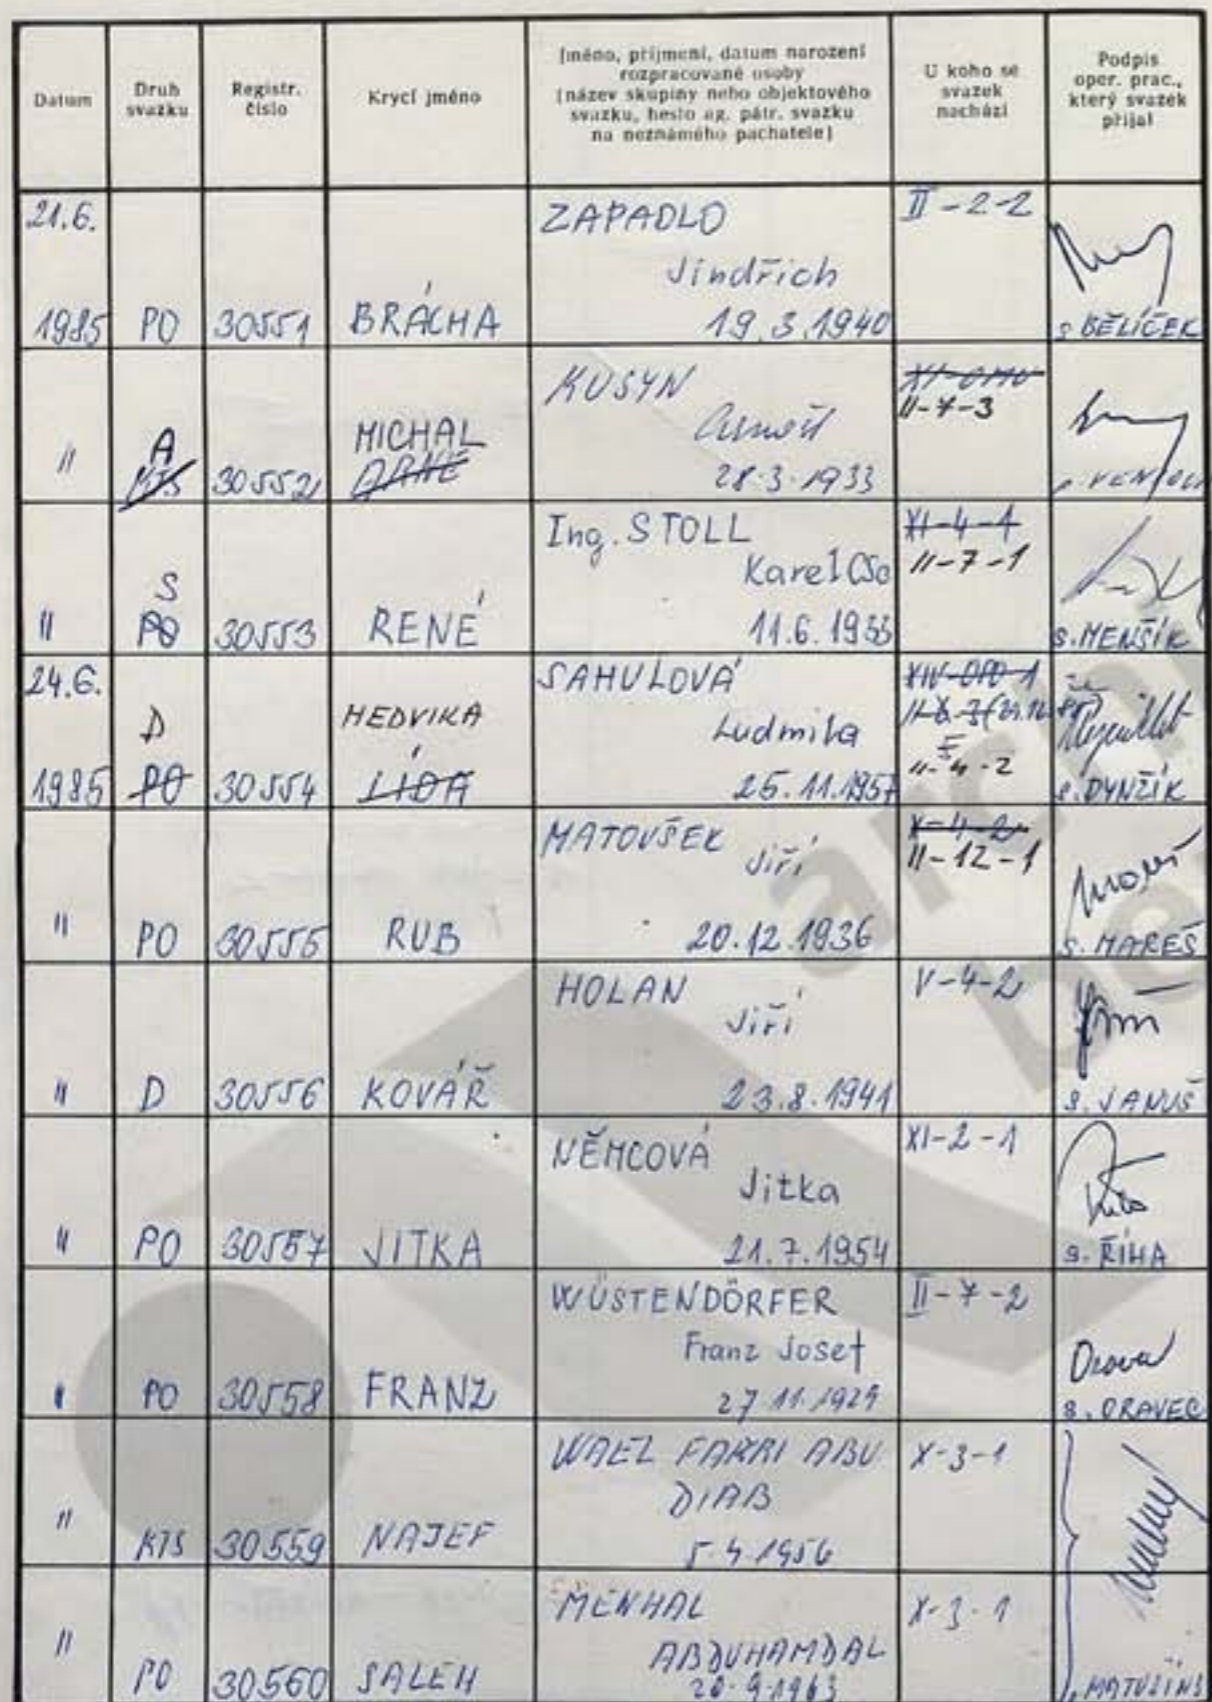 Datum
Druh
svazku
Registr.
číslo
Krycí jméno
Jméno, příjmení, datum narození
rozpracované osoby
(název skupiny nebo objektového
svazku, heslo ag. pátr. svazku
na neznámého pachatele)
U koho se
svazek
nachází
Podpis
oper. prac.,
který svazek
přijal
21.6.
1985
PO
30551
BRÁCHA
ZAPADLO
Jindřich
19.3.1940
II-2-2
s BĚLÍČEK
"
A
KTS
30552
MICHAL
ARNE
KUSYN
Arnošt
28.3.1933
II-7-3
"
S
PO
30553
RENÉ
Ing. STOLL
Karel CSc
11.6.1933
XI-4-1
II-7-1
s. MENŠÍK
24.6.
1985
D
PO
30554
HEDVIKA
LÍDA
SAMULOVÁ
Ludmila
25.11.1957
II-4-2
s. DYNŽÍK
"
PO
30555
RUB
MATOUŠEK
Jiří
20.12.1936
X-4-2
II-12-1
s. MAREŠ
"
D
30556
KOVÁŘ
HOLAN
Jiří
23.8.1941
V-4-2
s. JANUŠ
"
PO
30557
JITKA
NĚMCOVÁ
Jitka
21.7.1954
XI-2-1
s. ŘÍHA
"
PO
30558
FRANZ
WÜSTENDÖRFER
Franz Josef
27.11.1929
II-7-2
s. ORAVEC
"
KTS
30559
NAJEF
WAEL FAKRI ABU
DIAB
5.4.1956
X-3-1
"
PO
30560
SALEH
MENHAL
ABDUHAMDAL
20.9.1963
X-3-1